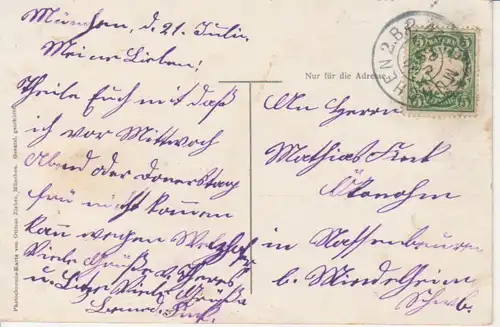 München, d. 21. Julii.
Meine Lieben!
Theile Euch mit daß
ich vor Mittwoch
Abend oder Donerstag
früh nicht kommen
kann wegen
Viele Grüße v. Theres
u. Viele Grüße
Fink.
Nur für die Adresse
An Herrn
Mathias Fink
Ökonom
in Nassenbeuren
b. Mindelheim
Schwb.
BAYERN
5
MÜNCHEN 2. B.P.
Photochromie-Karte von Ottmar Zieher, München. Gesetzl. geschützt.